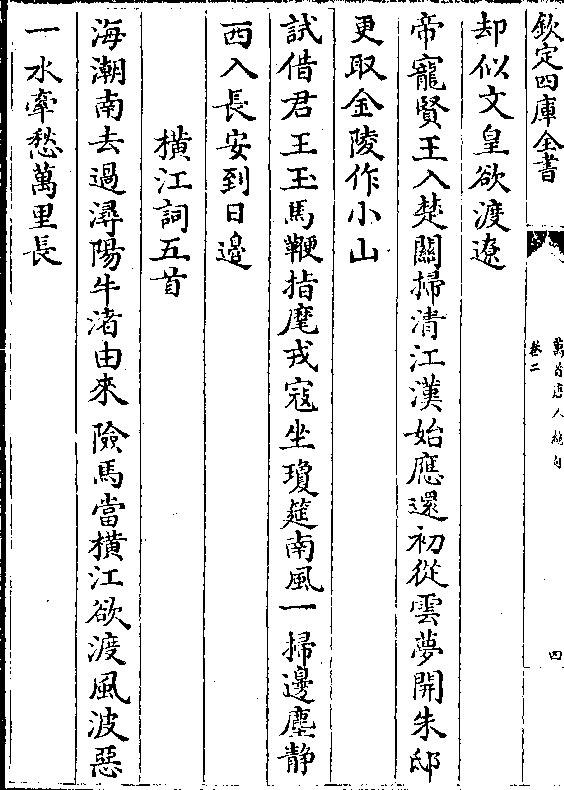 欽定四庫全書
萬首唐人絶句
卷二
四
却似文皇欲渡遼
帝寵賢王入楚關掃清江漢始應還初從雲夢開朱邸
更取金陵作小山
試借君王玉馬鞭指麾戎寇坐瓊筵南風一掃邊塵静
西入長安到日邊
橫江詞五首
海潮南去過潯陽牛渚由來險馬當橫江欲渡風波惡
一水牽愁萬里長